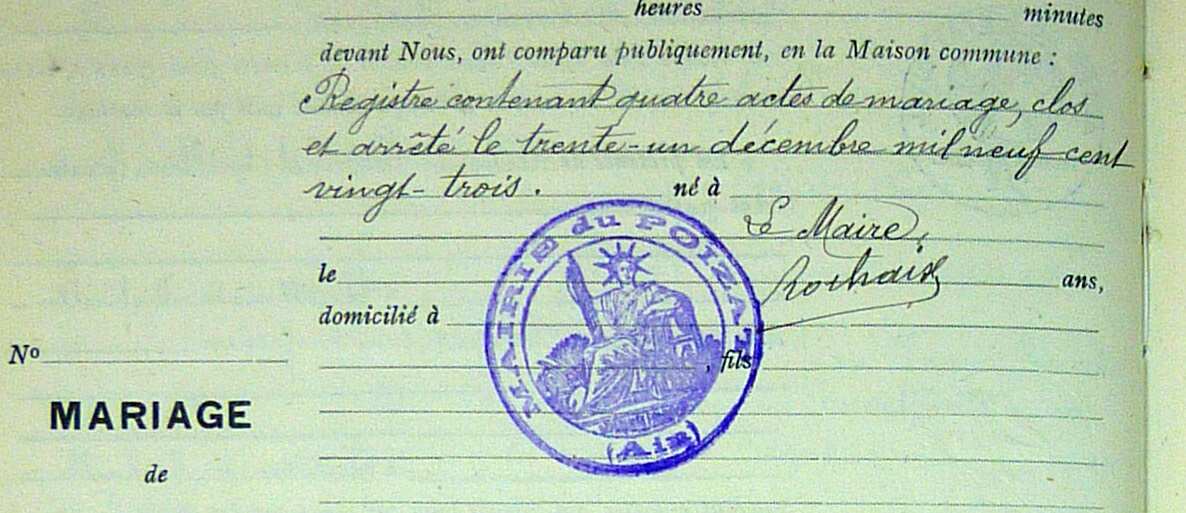 heures minutes
devant Nous, ont comparu publiquement, en la Maison commune :
Registre contenant quatre actes de mariage, clos
et arrêté le trente-un décembre mil neuf cent
vingt-trois. né à
Le Maire,
le ans,
Rochaix
domicilié à
, fils
MAIRIE du POIZAT
(Ain)
No
MARIAGE
de